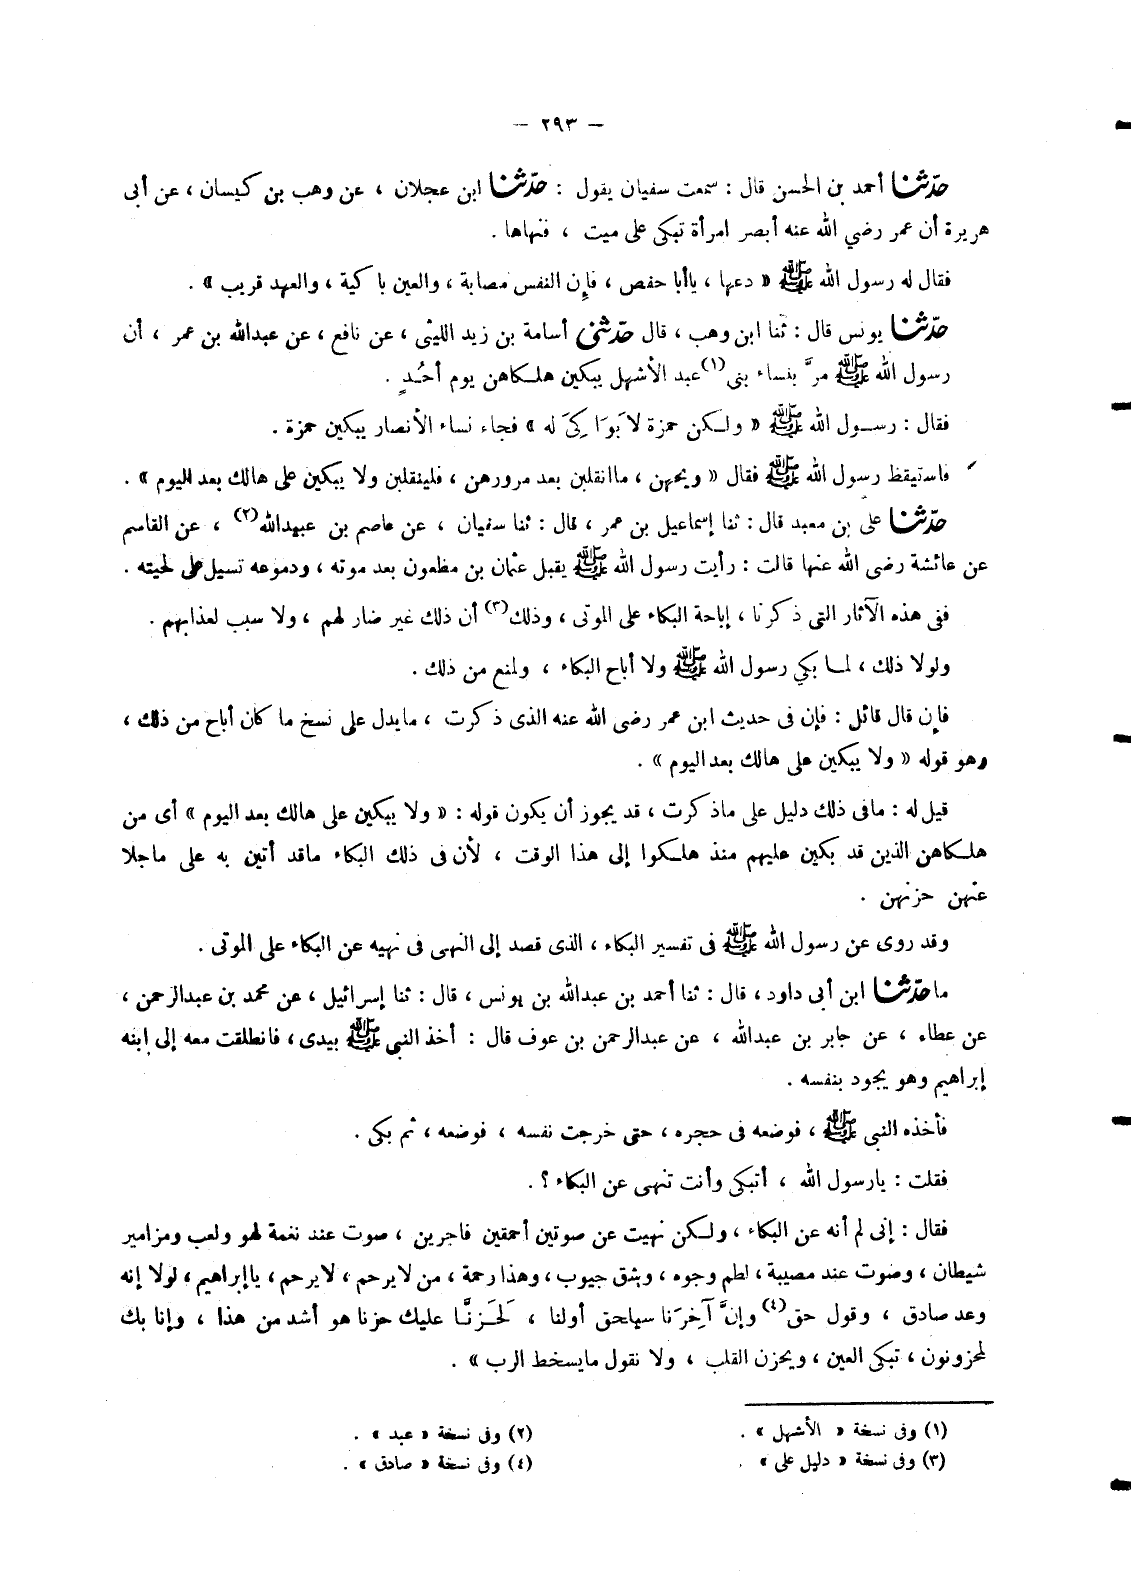 — ٢٩٣ —
حدّثنا أحمد بن الحسن قال : سمعت سفيان يقول : حدّثنا ابن عجلان ، عن وهب بن كيسان ، عن أبى
هريرة أن عمر رضي الله عنه أبصر امرأة تبكى على ميت ، فنهاها .
فقال له رسول الله ﷺ « دعها ، يا أبا حفص ، فإن النفس مصابة ، والعين باكية ، والعهد قريب » .
حدّثنا يونس قال : ثنا ابن وهب ، قال حدّثنى أسامة بن زيد الليثى ، عن نافع ، عن عبدالله بن عمر ، أن
رسول الله ﷺ مرَّ بنساء بنى(١) عبد الأشهل يبكين هلكاهن يوم أحُدٍ .
فقال : رسول الله ﷺ « ولكن حمزة لا بَوَاكِىَ له » فجاء نساء الأنصار يبكين حمزة .
فاستيقظ رسول الله ﷺ فقال « ويحهن ، ماانقلبن بعد مرورهن ، فلينقلبن ولا يبكين على هالك بعد اليوم » .
حدّثنا على بن معبد قال : ثنا إسماعيل بن عمر ، قال : ثنا سفيان ، عن عاصم بن عبيدالله(٢) ، عن القاسم
عن عائشة رضى الله عنها قالت : رأيت رسول الله ﷺ يقبل عثمان بن مظعون بعد موته ، ودموعه تسيل على لحيته .
ففى هذه الآثار التى ذكرنا ، إباحة البكاء على الموتى ، وذلك(٣) أن ذلك غير ضار لهم ، ولا سبب لعذابهم .
ولولا ذلك ، لما بكي رسول الله ﷺ ولا أباح البكاء ، ولمنع من ذلك .
فإن قال قائل : فإن فى حديث ابن عمر رضى الله عنه الذى ذكرت ، مايدل على نسخ ما كان أباح من ذلك ،
وهو قوله « ولا يبكين على هالك بعد اليوم » .
قيل له : مافى ذلك دليل على ماذكرت ، قد يجوز أن يكون قوله : « ولا يبكين على هالك بعد اليوم » أى من
هلكاهن الذين قد بكين عليهم منذ هلكوا إلى هذا الوقت ، لأن فى ذلك البكاء ماقد أتين به على ماجلا
عنهن حزنهن .
وقد روى عن رسول الله ﷺ فى تفسير البكاء ، الذى قصد إلى النهى فى نهيه عن البكاء على الموتى .
ما حدّثنا ابن أبى داود ، قال : ثنا أحمد بن عبدالله بن يونس ، قال : ثنا إسرائيل ، عن محمد بن عبدالرحمن ،
عن عطاء ، عن جابر بن عبدالله ، عن عبدالرحمن بن عوف قال : أخذ النبي ﷺ بيدى ، فانطلقت معه إلى ابنه
إبراهيم وهو يجود بنفسه .
فأخذه النبي ﷺ ، فوضعه فى حجره ، حتى خرجت نفسه ، فوضعه ، ثم بكى .
فقلت : يارسول الله ، أتبكى وأنت تنهى عن البكاء ؟ .
فقال : إنى لم أنه عن البكاء ، ولكن نهيت عن صوتين أحمقين فاجرين ، صوت عند نغمة لهو ولعب ومزامير
شيطان ، وصوت عند مصيبة ، لطم وجوه ، وشق جيوب ، وهذا رحمة ، من لايرحم ، لايرحم ، ياإبراهيم ، لولا إنه
وعد صادق ، وقول حق(٤) وإنَّ آخِرَنا سيلحق أولنا ، لَحَزِنَّا عليك حزنا هو أشد من هذا ، وإنا بك
لمحزونون ، تبكى العين ، ويحزن القلب ، ولا نقول مايسخط الرب » .
(١) وفى نسخة « الأشهل » . (٢) وفى نسخة « عبد » .
(٣) وفى نسخة « دليل على » . (٤) وفى نسخة « صادق » .